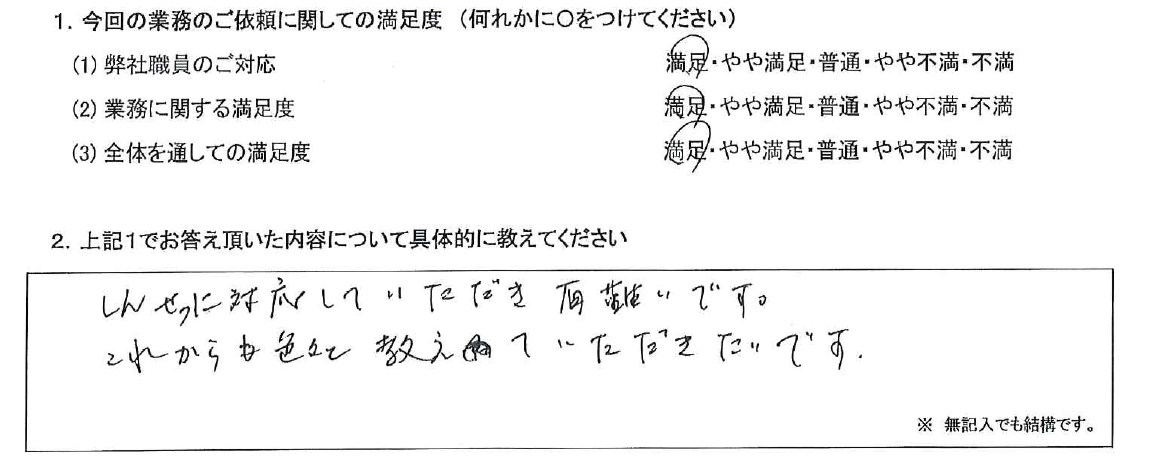 1. 今回の業務のご依頼に関しての満足度 (何れかに○をつけてください)
(1) 弊社職員のご対応 満足・やや満足・普通・やや不満・不満
(2) 業務に関する満足度 満足・やや満足・普通・やや不満・不満
(3) 全体を通しての満足度 満足・やや満足・普通・やや不満・不満
2. 上記1でお答え頂いた内容について具体的に教えてください
しんせつに対応していただき有難いです。
これからも色々と教えていただきたいです.
※ 無記入でも結構です。